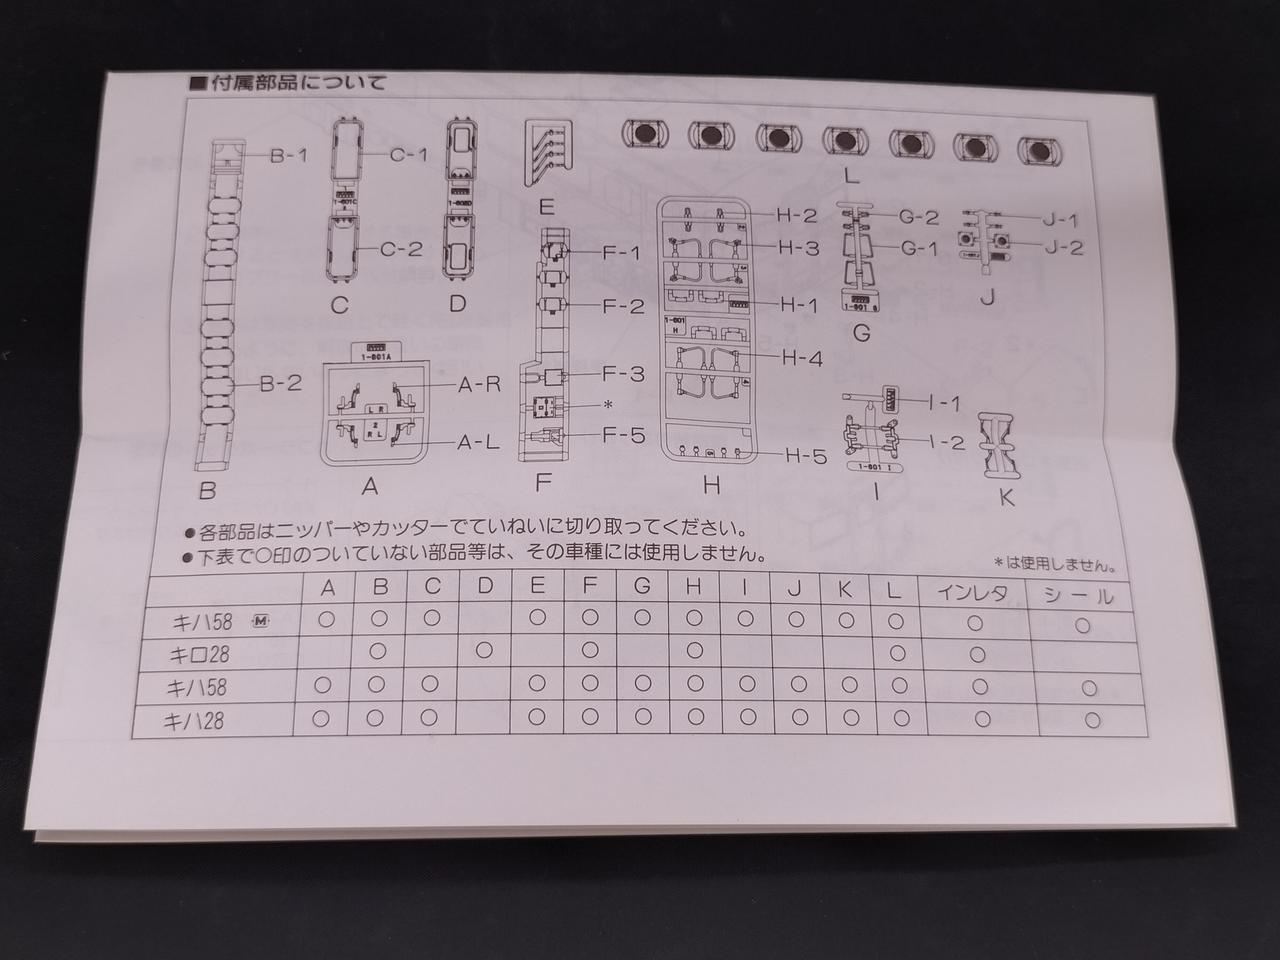 ■付属部品について
B-1
C-1
1-601C
2
C-2
1-602D
E
L
H-2
G-2
J-1
F-1
H-3
G-1
J-2
C
D
J
F-2
H-1
1-601 G
G
1-601
H
1-601A
H-4
B-2
A-R
F-3
L R
2
R L
*
I-1
A-L
F-5
H-5
I-2
1-601 I
B
A
F
H
I
K
●各部品はニッパーやカッターでていねいに切り取ってください。
●下表で○印のついていない部品等は、その車種には使用しません。
*は使用しません。
A B C D E F G H I J K L インレタ シール
キハ58 M ○ ○ ○ ○ ○ ○ ○ ○ ○ ○ ○ ○ ○
キロ28 ○ ○ ○ ○ ○ ○
キハ58 ○ ○ ○ ○ ○ ○ ○ ○ ○ ○ ○ ○ ○
キハ28 ○ ○ ○ ○ ○ ○ ○ ○ ○ ○ ○ ○ ○